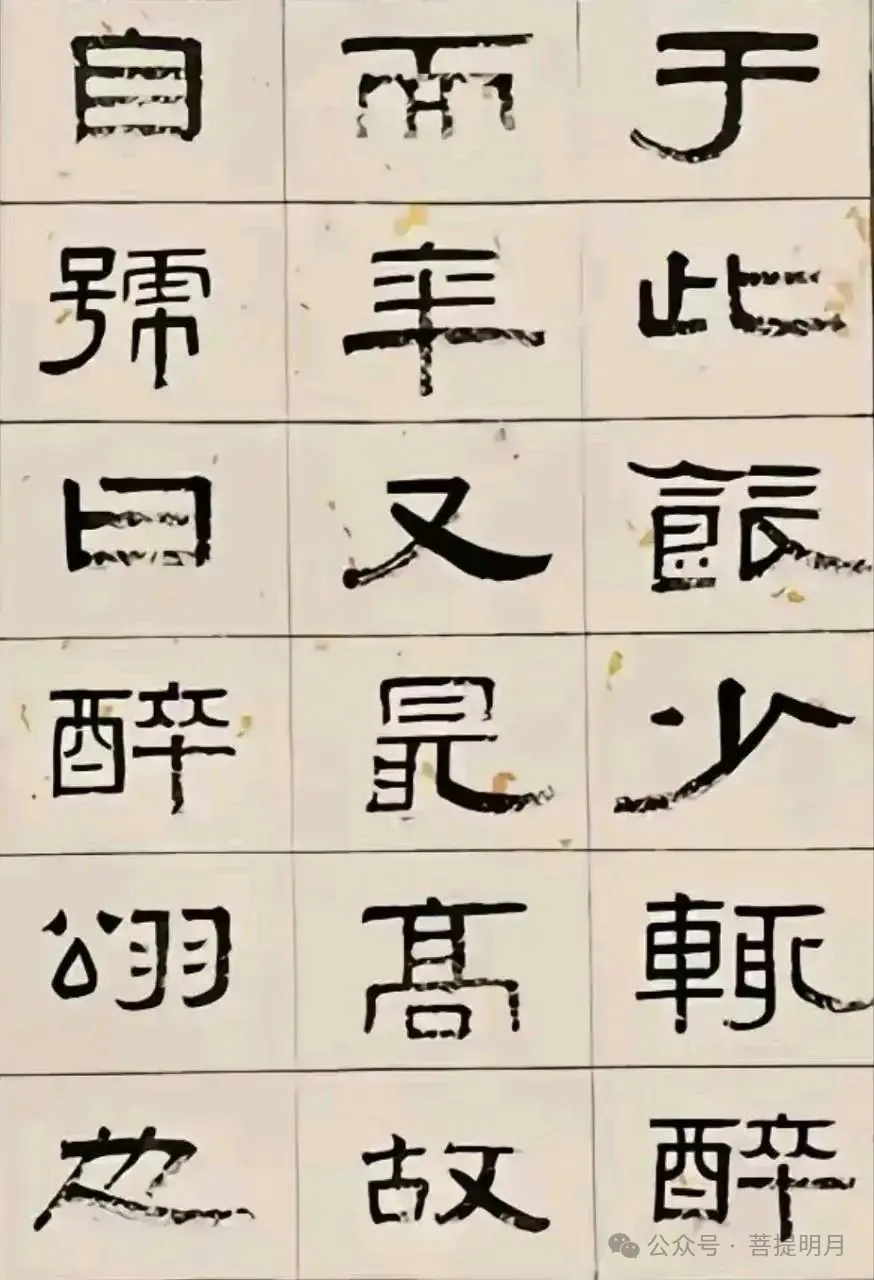 于此飲少輒醉
而年又最高故
自號曰醉翁也
公众号 · 菩提明月